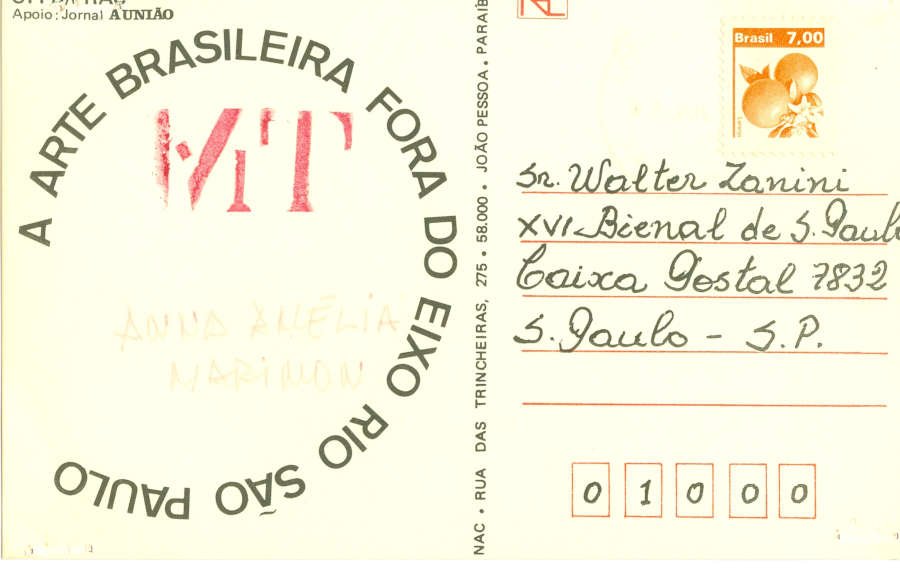 Apoio: Jornal A UNIÃO
A ARTE BRASILEIRA FORA DO EIXO RIO SÃO PAULO
MT
ANNA AMÉLIA
MARIMON
NAC . RUA DAS TRINCHEIRAS, 275 . 58.000 . JOÃO PESSOA . PARAÍB
Brasil 7,00
Sr. Walter Zanini
XVI Bienal de S. Paulo
Caixa Postal 7832
S. Paulo - S.P.
0 1 0 0 0